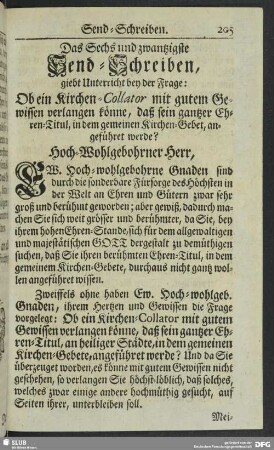 Send-Schreiben. 205
Das Sechs und zwantzigste
Send-Schreiben,
giebt Unterricht bey der Frage:
Ob ein Kirchen-Collator mit gutem Ge-
wissen verlangen könne, daß sein gantzer Eh-
ren-Titul, in dem gemeinen Kirchen-Gebet, an-
geführet werde?
Hoch-Wohlgebohrner Herr,
EW. Hoch-wohlgebohrne Gnaden sind
durch die sonderbare Fürsorge des Höchsten in
der Welt an Ehren und Gütern zwar sehr
groß und berühmt geworden; aber gewiß, dadurch ma-
chen Sie sich weit grösser und berühmter, da Sie, bey
ihrem hohen Ehren-Stande, sich für dem allgewaltigen
und majestätischen GOTT dergestalt zu demüthigen
suchen, daß Sie ihren berühmten Ehren-Titul, in dem
gemeinem Kirchen-Gebete, durchaus nicht gantz wol-
len angeführet wissen.
Zweiffels ohne haben Ew. Hoch-wohlgeb.
Gnaden, ihrem Hertzen und Gewissen die Frage
vorgeleget: Ob ein Kirchen-Collator mit gutem
Gewissen verlangen könne, daß sein gantzer Eh-
ren-Titul, an heiliger Städte, in dem gemeinen
Kirchen-Gebete, angeführet werde? Und da Sie
überzeuget worden, es könne mit gutem Gewissen nicht
geschehen, so verlangen Sie höchst-löblich, daß solches,
welches zwar einige andere hochmüthig gesucht, auf
Seiten ihrer, unterbleiben soll.
Mei-
SLUB
Wir führen Wissen.
DFG